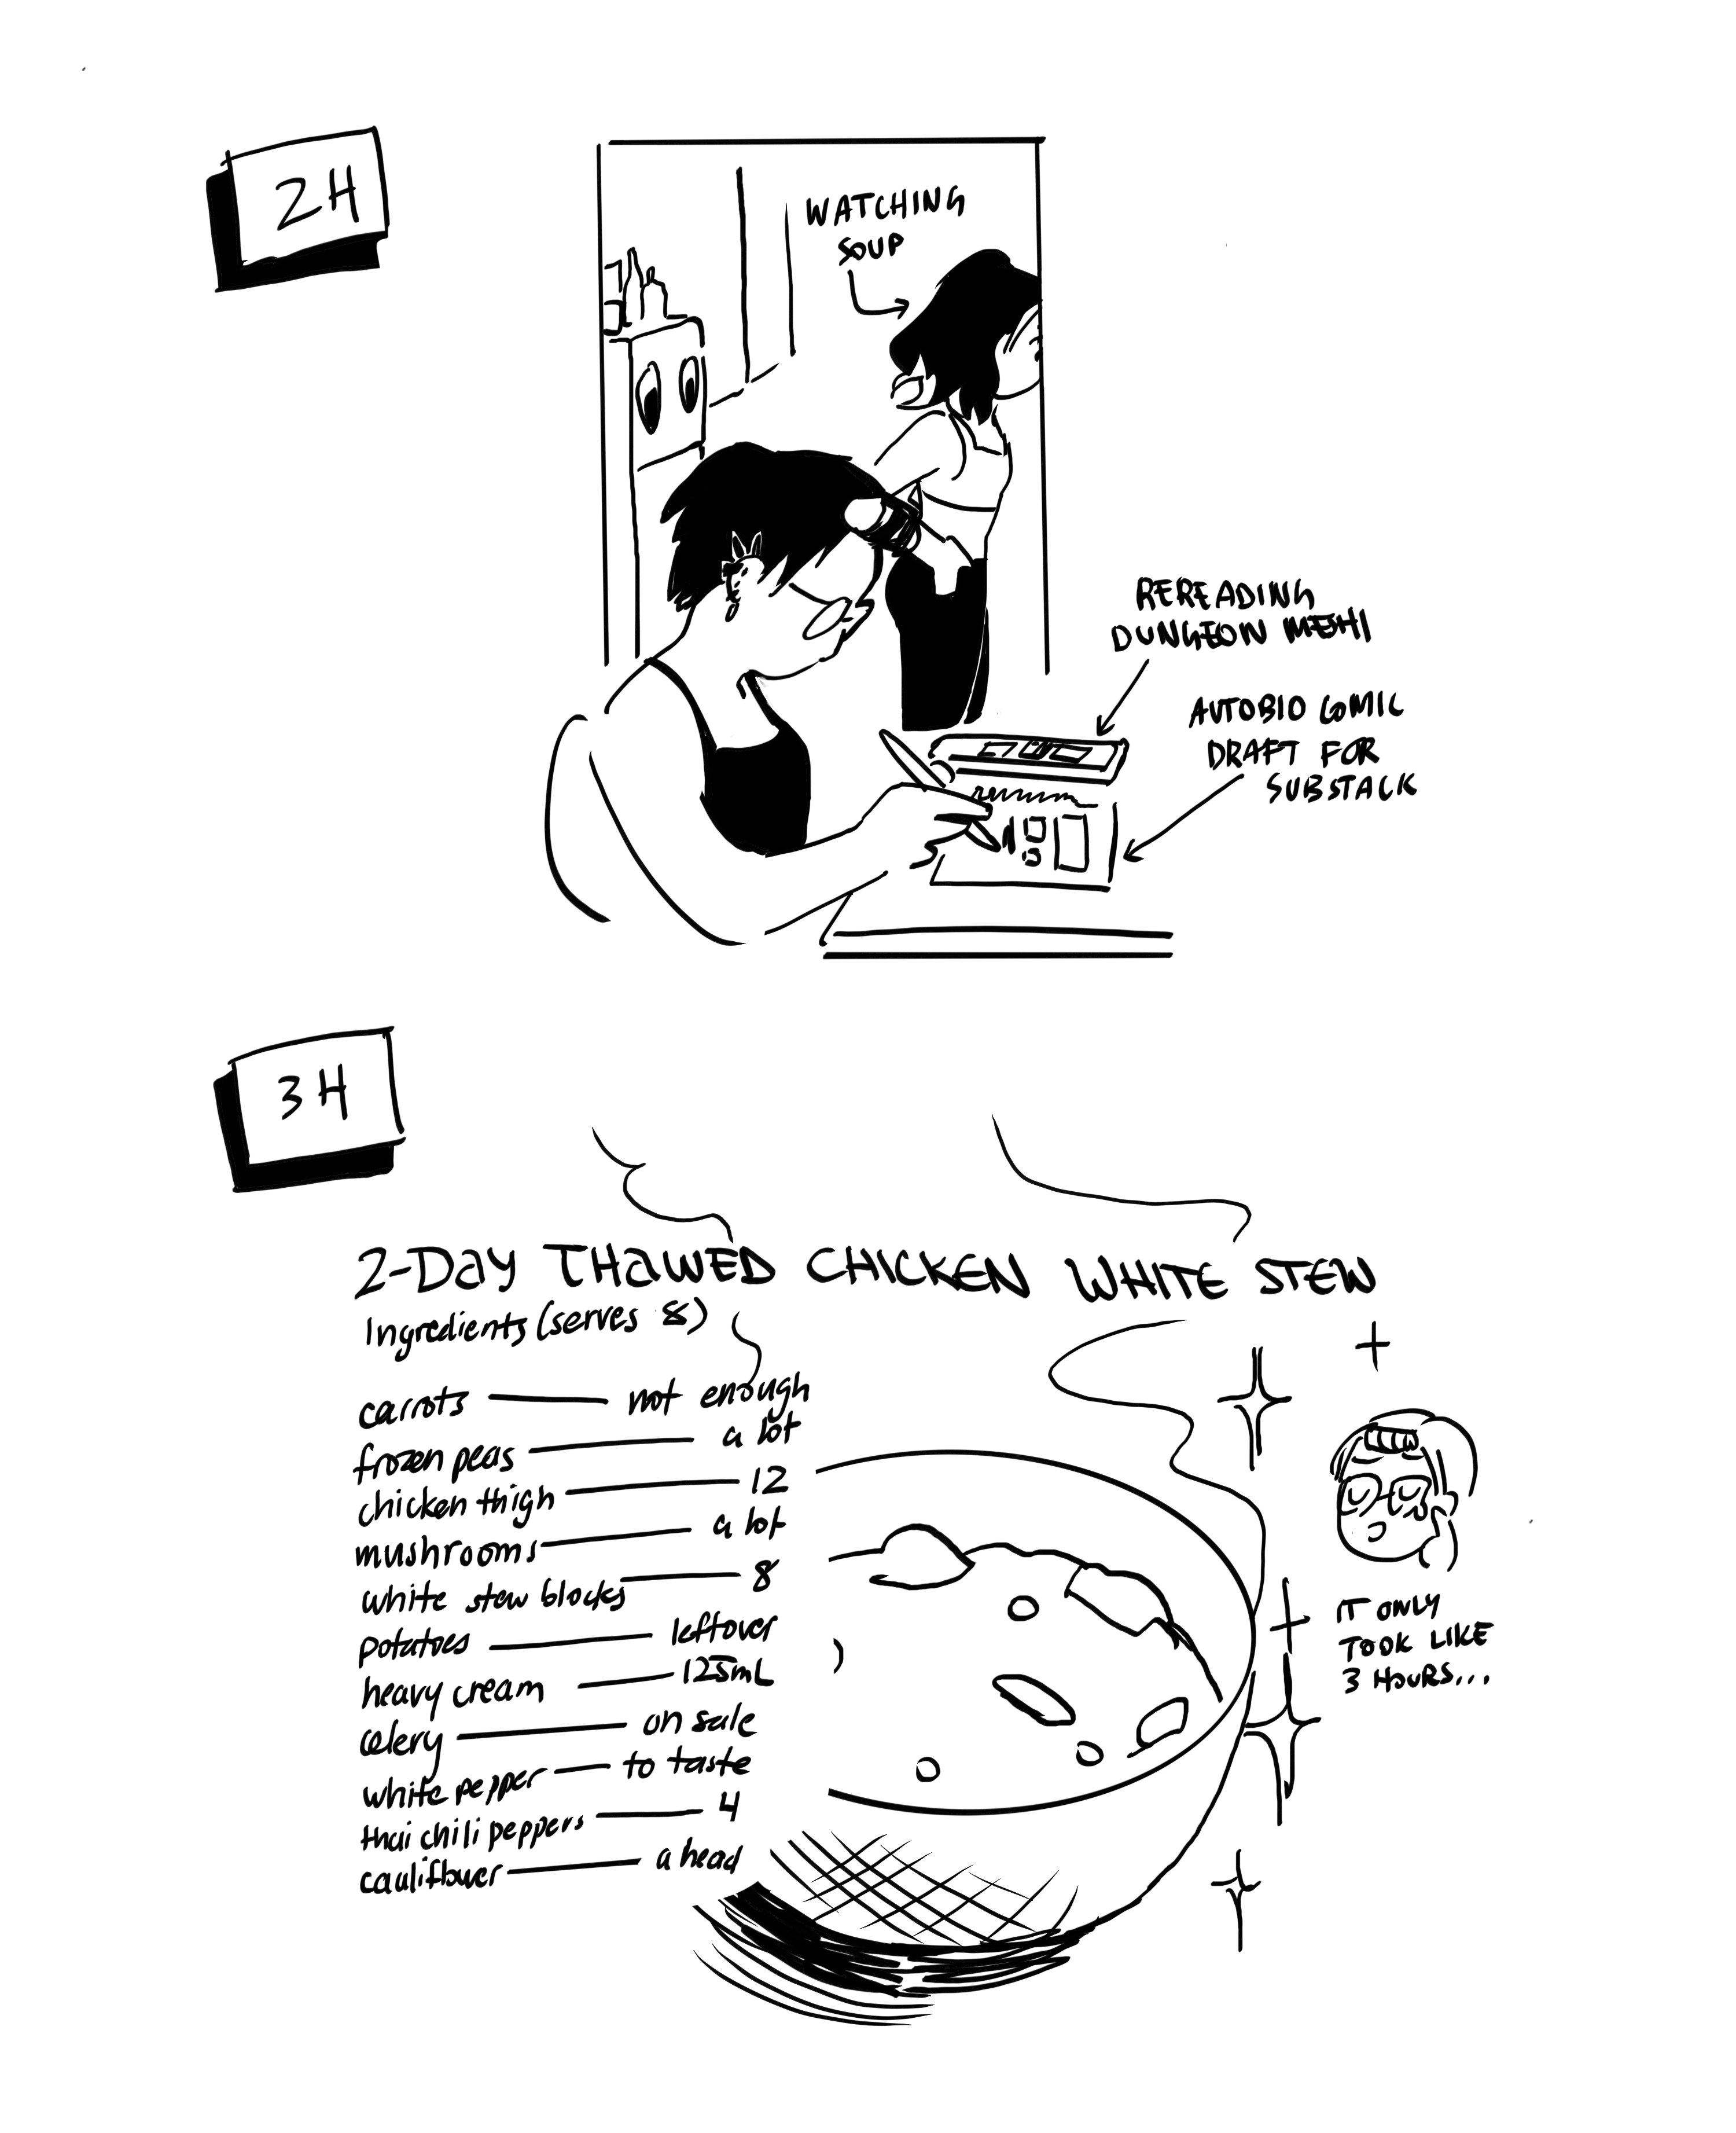 2H
WATCHING
SOUP
REREADING
DUNGEON MESHI
AUTOBIO COMIC
DRAFT FOR
SUBSTACK
3H
2-DAY THAWED CHICKEN WHITE STEW
Ingredients (serves 8)
carrots — not enough
frozen peas — a lot
chicken thigh — 12
mushrooms — a lot
white stew blocks — 8
potatoes — leftover
heavy cream — 125mL
celery — on sale
white pepper — to taste
thai chili peppers — 4
cauliflower — a head
IT ONLY
TOOK LIKE
3 HOURS...